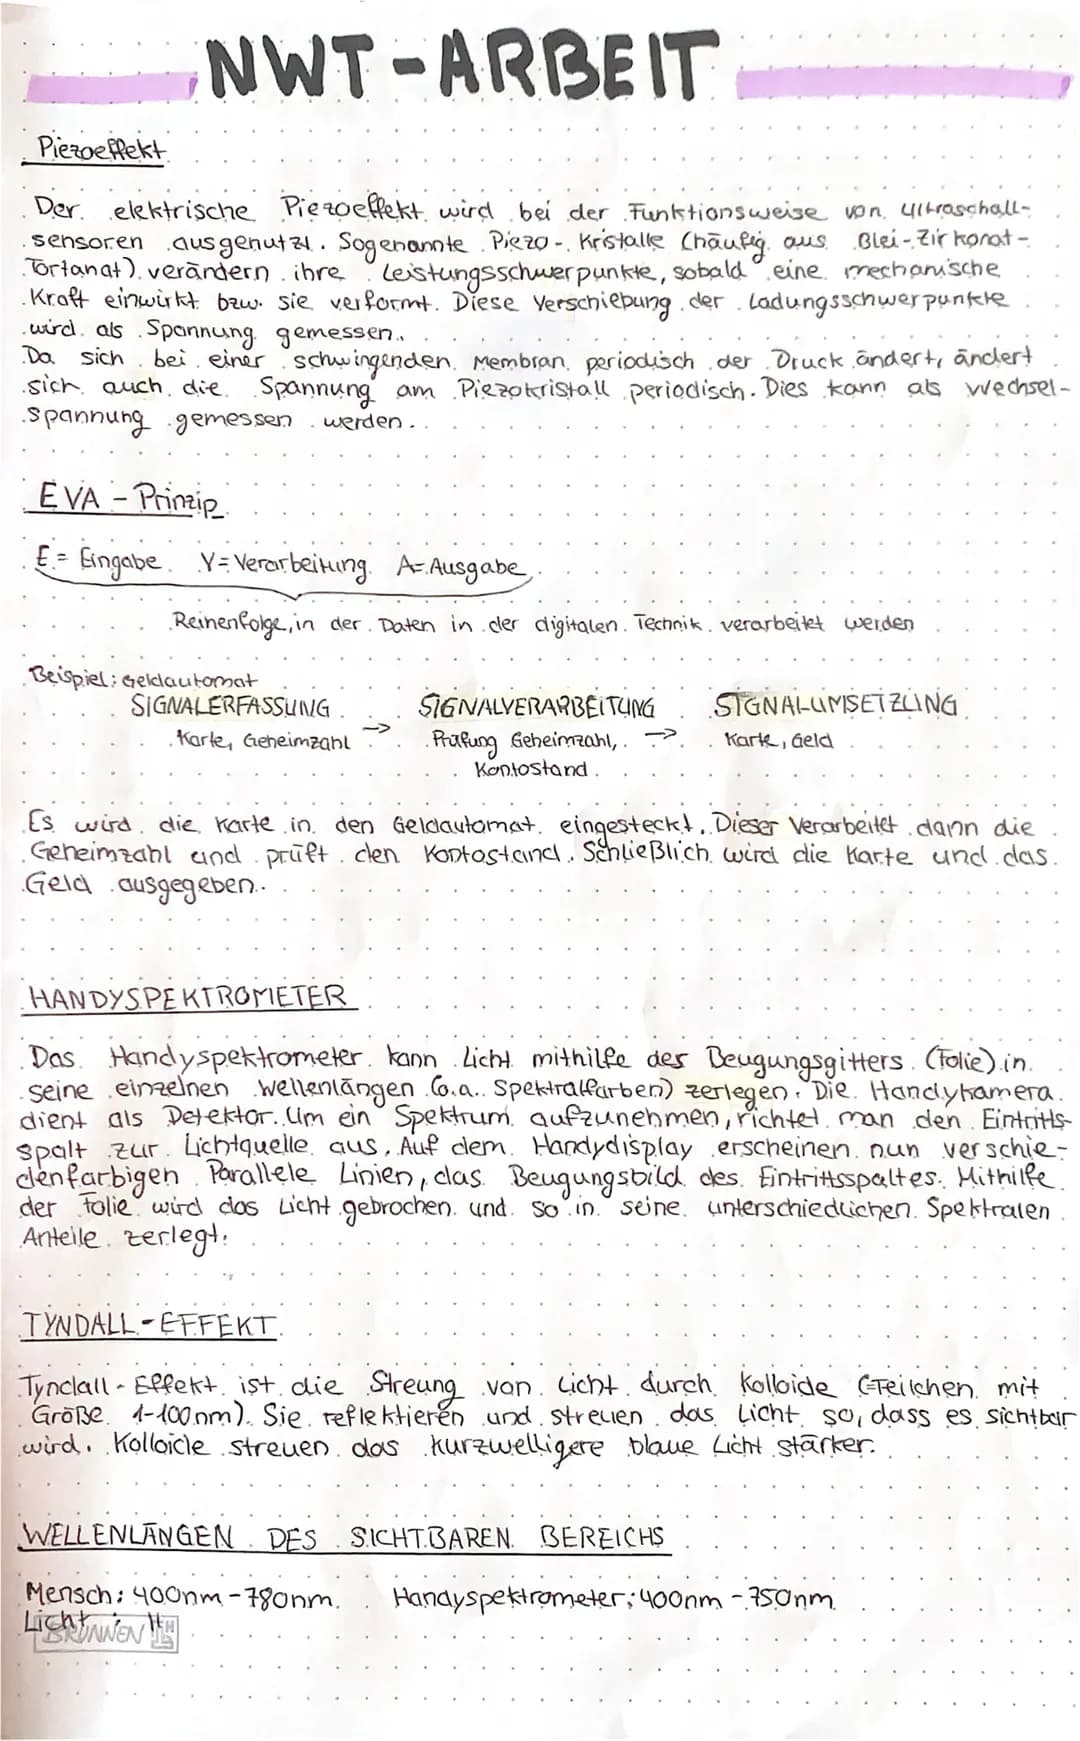 NWT-ARBEIT
Piezoeffekt
Der elektrische Piezoeffekt wird bei der Funktionsweise von Ultraschall-
sensoren ausgenutzt. Sogenannte Piezo-Kristalle (häufig aus Blei-Zirkonat-
Tortanat) verändern ihre Leistungsschwerpunkte, sobald eine mechanische
Kraft einwirkt bzw. sie verformt. Diese Verschiebung der Ladungsschwerpunkte
wird als Spannung gemessen.
Da sich bei einer schwingenden Membran periodisch der Druck ändert, ändert
sich auch die Spannung am Piezokristall periodisch. Dies kann als Wechsel-
spannung gemessen werden.
EVA-Prinzip
E= Eingabe V= Verarbeitung A= Ausgabe
Reihenfolge, in der Daten in der digitalen Technik verarbeitet werden
Beispiel: Geldautomat
SIGNALERFASSUNG SIGNALVERARBEITUNG SIGNALUMSETZUNG
Karte, Geheimzahl -> Prüfung Geheimzahl, -> Karte, Geld
Kontostand
Es wird die Karte in den Geldautomat eingesteckt. Dieser Verarbeitet dann die
Geheimzahl und prüft den Kontostand. Schließlich wird die Karte und das
Geld ausgegeben.
HANDYSPEKTROMETER
Das Handyspektrometer kann Licht mithilfe des Beugungsgitters (Folie) in
seine einzelnen Wellenlängen (o.a. Spektralfarben) zerlegen. Die Handykamera
dient als Detektor. Um ein Spektrum aufzunehmen, richtet man den Eintritts-
spalt zur Lichtquelle aus. Auf dem Handydisplay erscheinen nun verschie-
denfarbigen Parallele Linien, das Beugungsbild des Eintrittsspaltes. Mithilfe
der Folie wird das Licht gebrochen und so in seine unterschiedlichen Spektralen
Anteile zerlegt.
TYNDALL-EFFEKT
Tyndall-Effekt ist die Streung von Licht durch Kolloide (=Teilchen mit
Größe 1-100nm). Sie reflektieren und streuen das Licht so, dass es sichtbar
wird. Kolloide streuen das kurzwelligere blaue Licht stärker.
WELLENLÄNGEN DES SICHTBAREN BEREICHS
Mensch: 400nm-780nm Handyspektrometer: 400nm-750nm
Licht: "
BRUNNEN